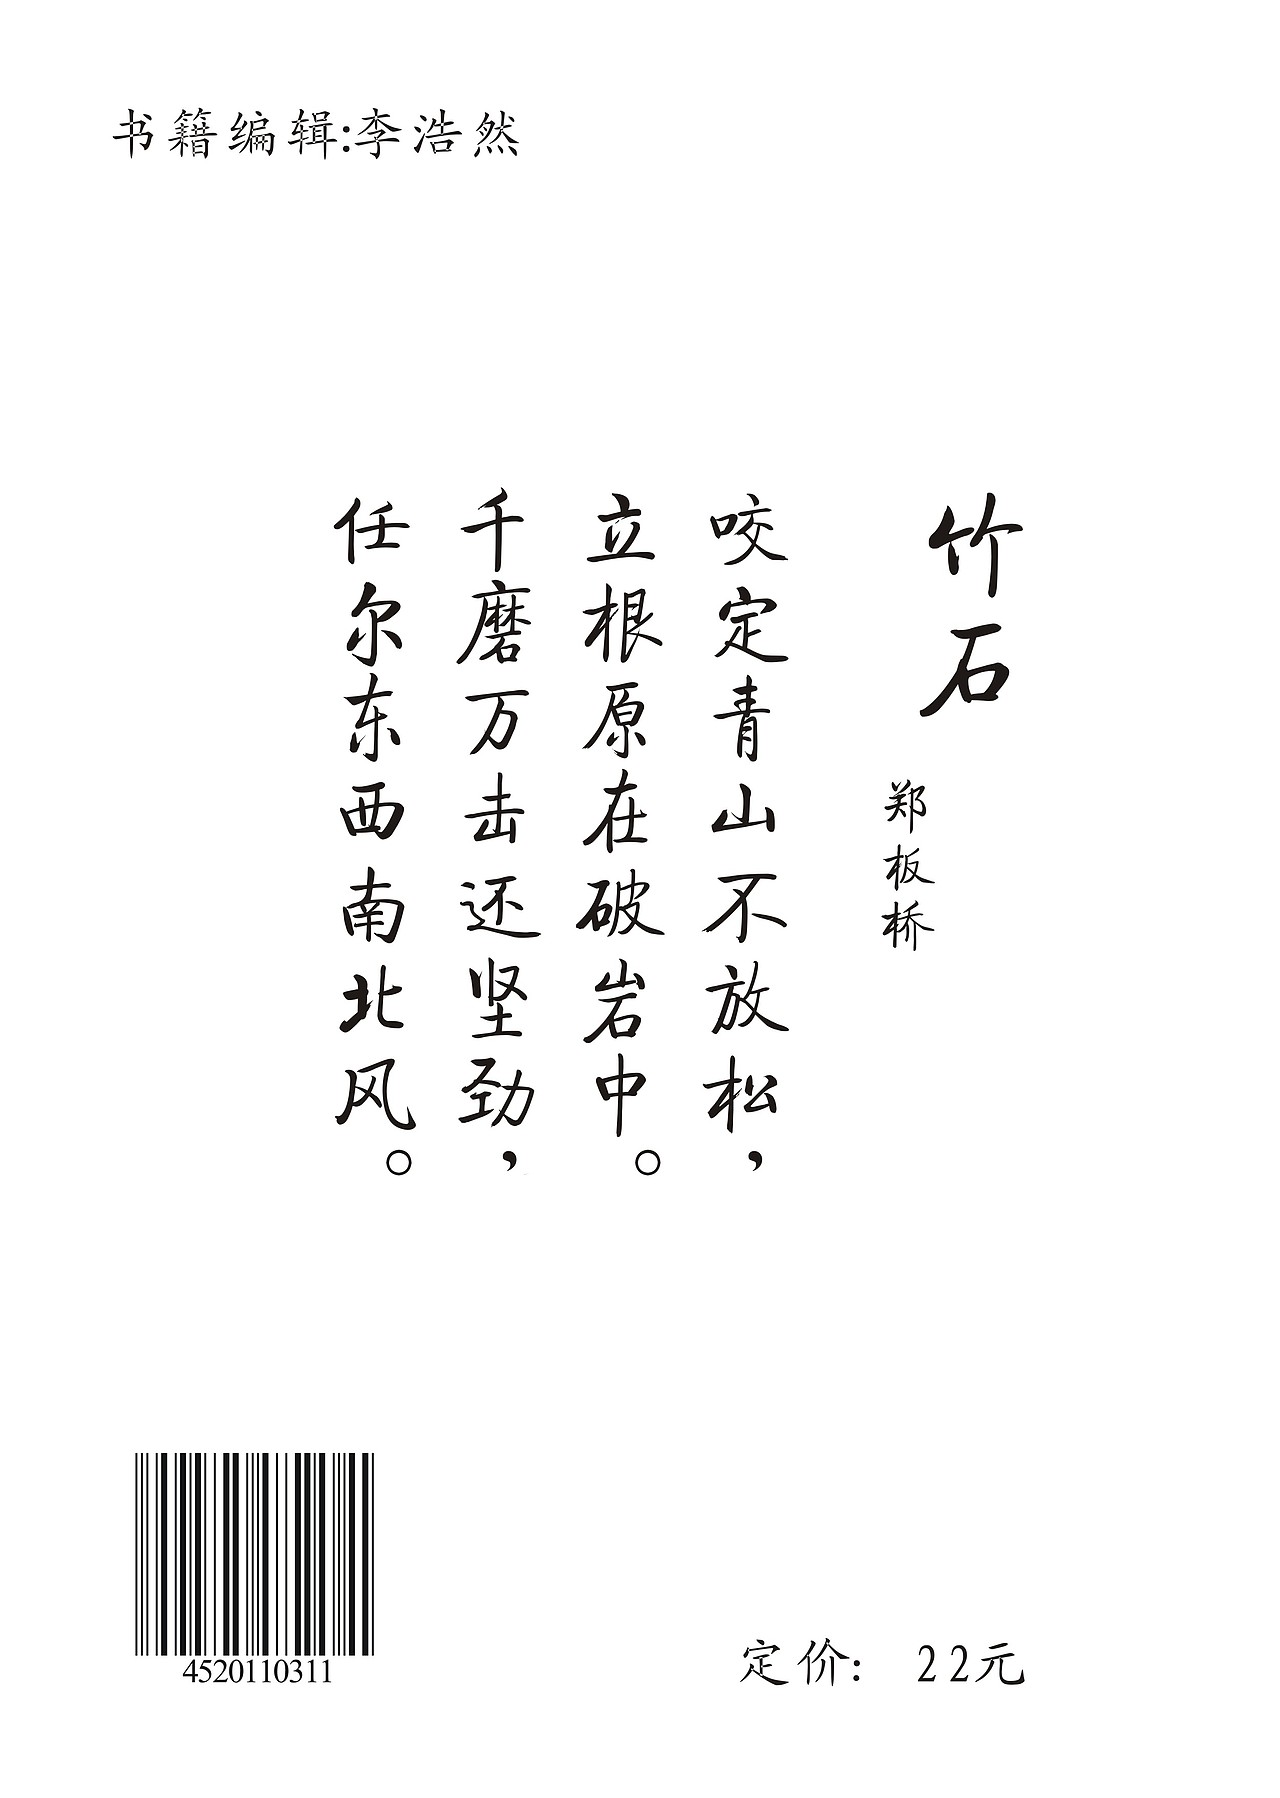 书籍编辑:李浩然
竹石
郑板桥
咬定青山不放松，
立根原在破岩中。
千磨万击还坚劲，
任尔东西南北风。
4520110311
定价: 22元